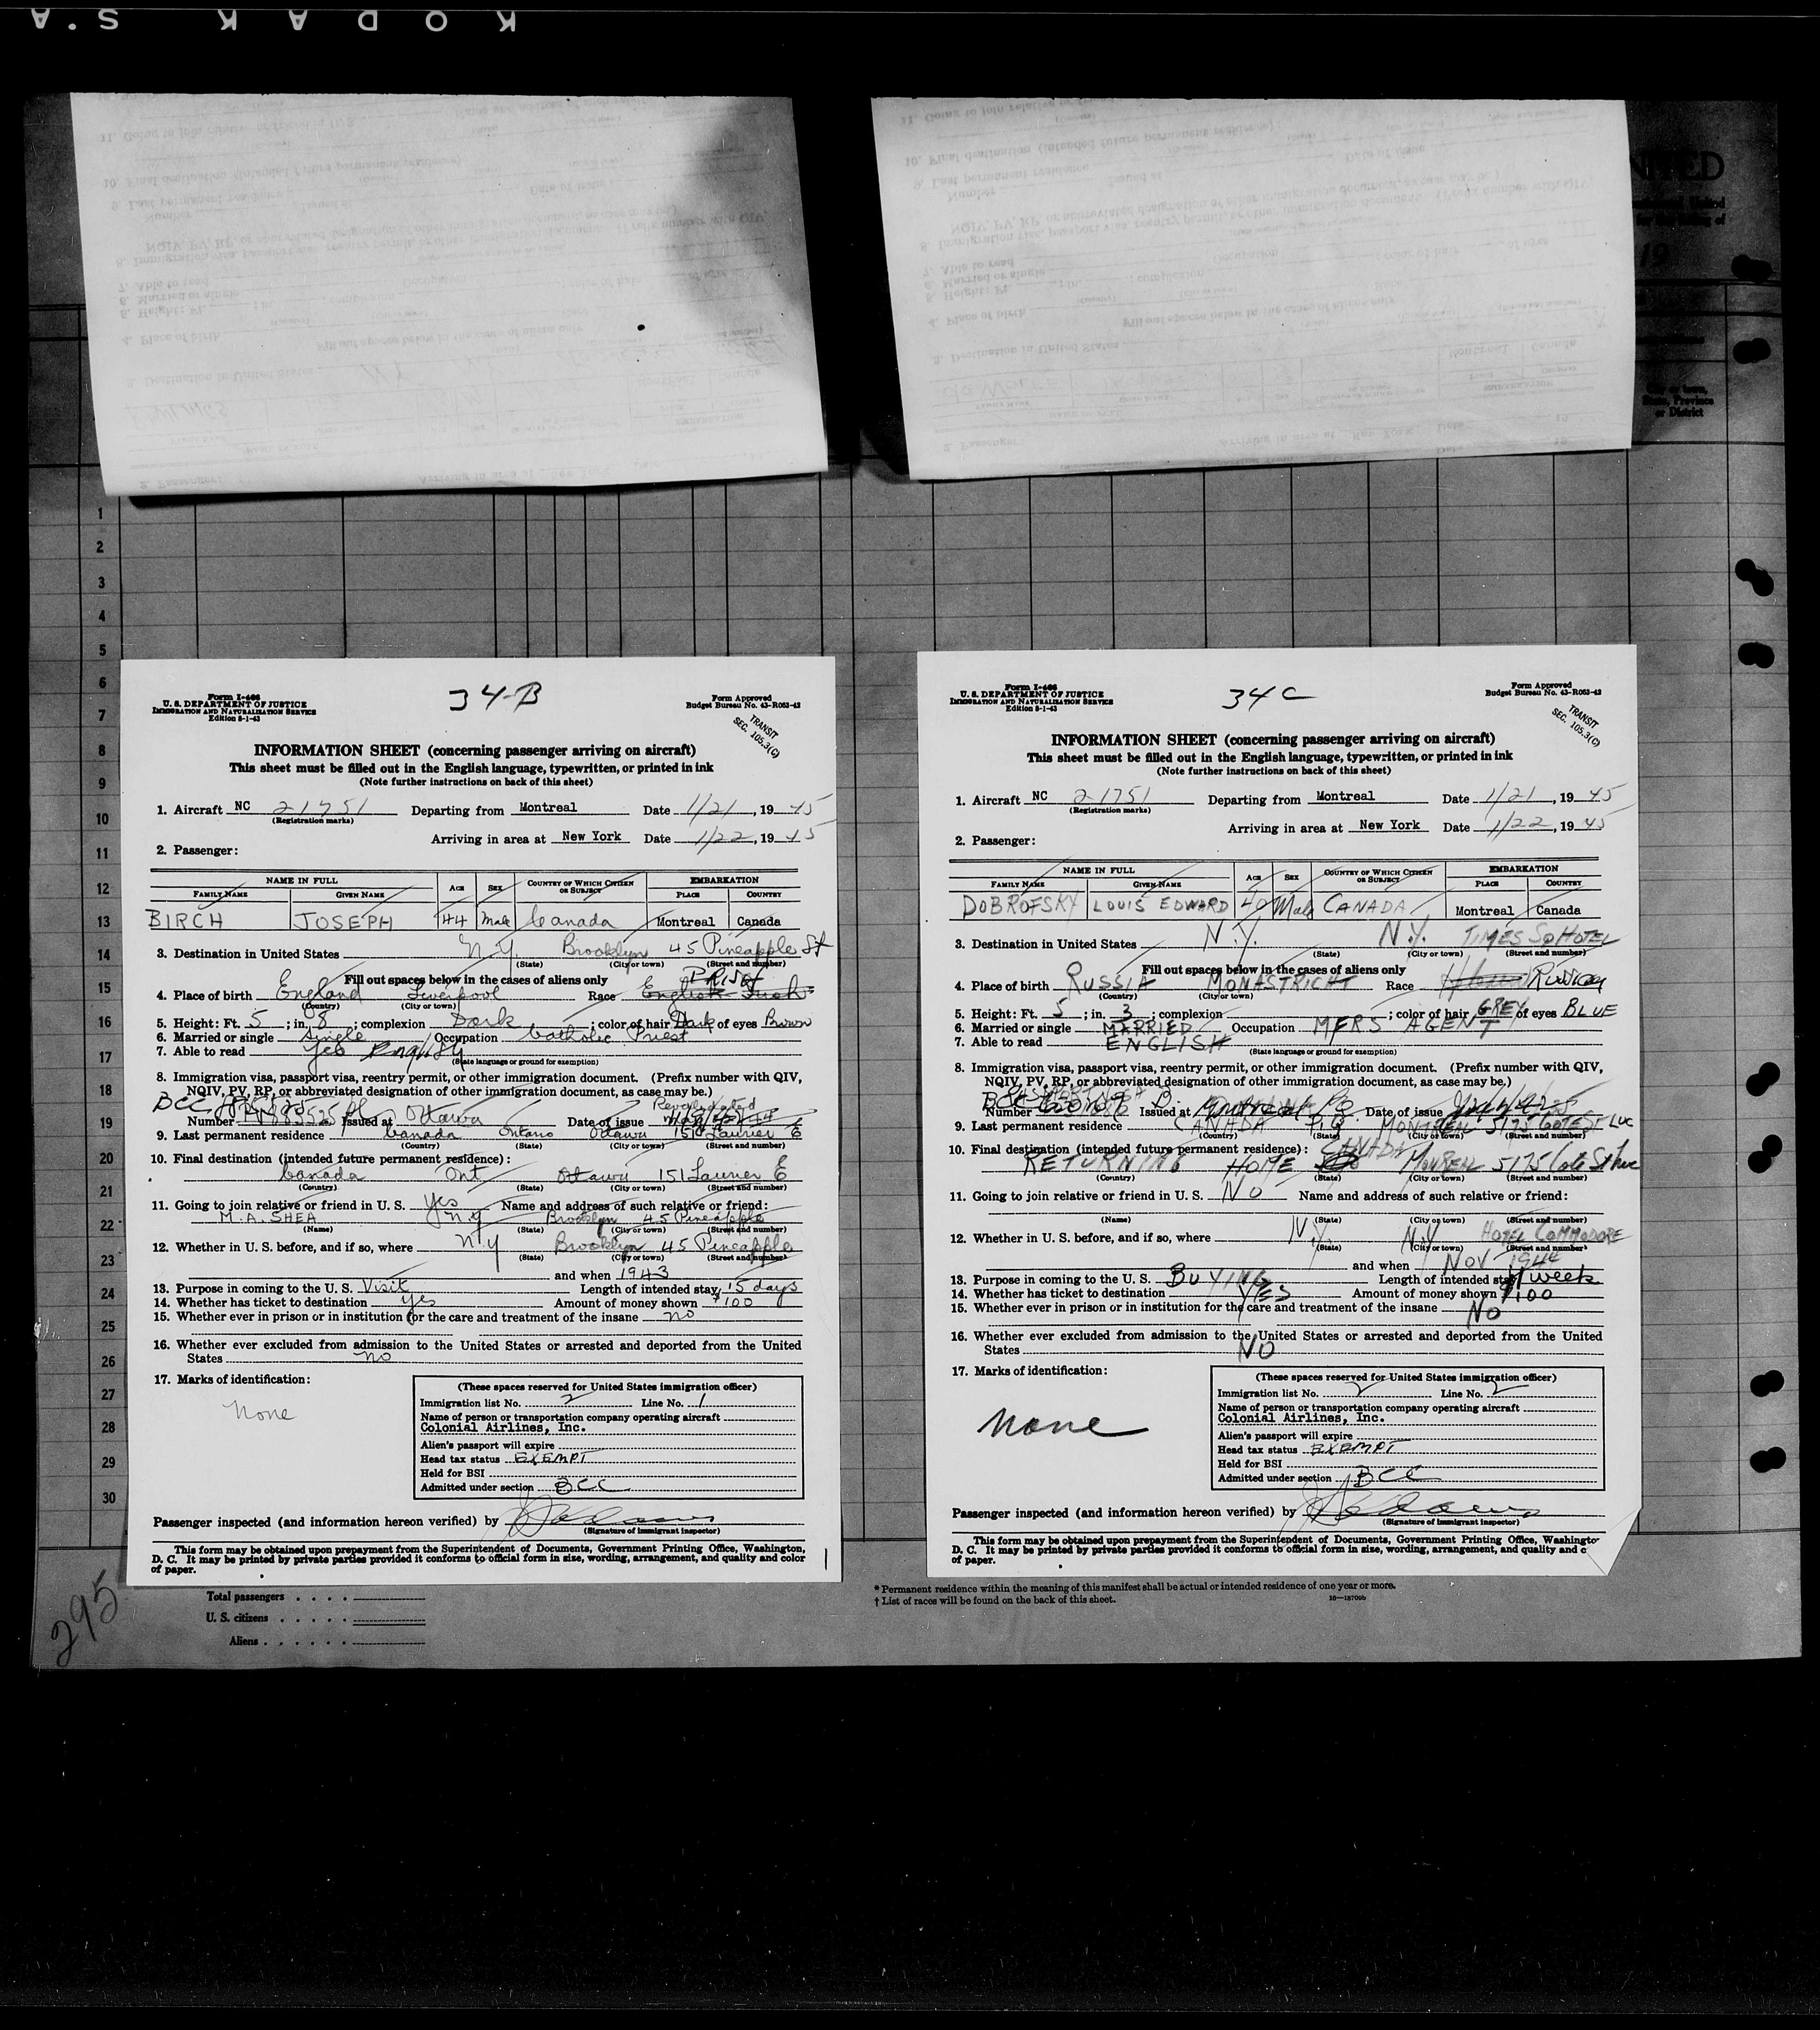 KODAK S.A
NITED
City or town,
State, Province
or District
1
2
3
4
5
6
7
8
9
10
11
12
13
14
15
16
17
18
19
20
21
22
23
24
25
26
27
28
29
30
Form I-466
U. S. DEPARTMENT OF JUSTICE
IMMIGRATION AND NATURALIZATION SERVICE
Edition 8-1-43
34-B
Form Approved
Budget Bureau No. 43-R063-42
TRANSIT
SEC. 105.3(C)
INFORMATION SHEET (concerning passenger arriving on aircraft)
This sheet must be filled out in the English language, typewritten, or printed in ink
(Note further instructions on back of this sheet)
1. Aircraft NC 21751 Departing from Montreal Date 1/21, 1945
(Registration marks)
Arriving in area at New York Date 1/22, 1945
2. Passenger:
NAME IN FULL AGE SEX COUNTRY OF WHICH CITIZEN OR SUBJECT EMBARKATION
FAMILY NAME GIVEN NAME PLACE COUNTRY
BIRCH JOSEPH 44 Male Canada Montreal Canada
3. Destination in United States N.Y. Brooklyn 45 Pineapple St
(State) (City or town) (Street and number)
Fill out spaces below in the cases of aliens only
4. Place of birth England Liverpool Race English Irish
(Country) (City or town)
5. Height: Ft. 5; in. 8; complexion Dark; color of hair Dark of eyes Brown
6. Married or single single Occupation Catholic Priest
7. Able to read yes English
(State language or ground for exemption)
8. Immigration visa, passport visa, reentry permit, or other immigration document. (Prefix number with QIV,
NQIV, PV, RP, or abbreviated designation of other immigration document, as case may be.)
BCC
Number Issued at Ottawa Date of issue
9. Last permanent residence Canada Ontario Ottawa 151 Laurier E
(Country) (State) (City or town) (Street and number)
10. Final destination (intended future permanent residence):
Canada Ont Ottawa 151 Laurier E
(Country) (State) (City or town) (Street and number)
11. Going to join relative or friend in U. S. yes Name and address of such relative or friend:
M. A. SHEA N.Y Brooklyn 45 Pineapple
(Name) (State) (City or town) (Street and number)
12. Whether in U. S. before, and if so, where N.Y Brooklyn 45 Pineapple
(State) (City or town) (Street and number)
and when 1943
13. Purpose in coming to the U. S. Visit Length of intended stay 15 days
14. Whether has ticket to destination yes Amount of money shown $100
15. Whether ever in prison or in institution for the care and treatment of the insane no
16. Whether ever excluded from admission to the United States or arrested and deported from the United
States no
17. Marks of identification:
None
(These spaces reserved for United States immigration officer)
Immigration list No. 2 Line No. 1
Name of person or transportation company operating aircraft
Colonial Airlines, Inc.
Alien's passport will expire
Head tax status EXEMPT
Held for BSI
Admitted under section BCC
Passenger inspected (and information hereon verified) by
(Signature of immigrant inspector)
This form may be obtained upon prepayment from the Superintendent of Documents, Government Printing Office, Washington,
D. C. It may be printed by private parties provided it conforms to official form in size, wording, arrangement, and quality and color
of paper.
Form I-466
U. S. DEPARTMENT OF JUSTICE
IMMIGRATION AND NATURALIZATION SERVICE
Edition 8-1-43
34C
Form Approved
Budget Bureau No. 43-R063-42
TRANSIT
SEC. 105.3(C)
INFORMATION SHEET (concerning passenger arriving on aircraft)
This sheet must be filled out in the English language, typewritten, or printed in ink
(Note further instructions on back of this sheet)
1. Aircraft NC 21751 Departing from Montreal Date 1/21, 1945
(Registration marks)
Arriving in area at New York Date 1/22, 1945
2. Passenger:
NAME IN FULL AGE SEX COUNTRY OF WHICH CITIZEN OR SUBJECT EMBARKATION
FAMILY NAME GIVEN NAME PLACE COUNTRY
DOBROFSKY LOUIS EDWARD 40 Male CANADA Montreal Canada
3. Destination in United States N.Y. N.Y. TIMES SQ HOTEL
(State) (City or town) (Street and number)
Fill out spaces below in the cases of aliens only
4. Place of birth RUSSIA MONASTRICHT Race Russian
(Country) (City or town)
5. Height: Ft. 5; in. 3; complexion; color of hair GREY of eyes BLUE
6. Married or single MARRIED Occupation MFRS AGENT
7. Able to read ENGLISH
(State language or ground for exemption)
8. Immigration visa, passport visa, reentry permit, or other immigration document. (Prefix number with QIV,
NQIV, PV, RP, or abbreviated designation of other immigration document, as case may be.)
Number Issued at Date of issue
9. Last permanent residence CANADA P.Q MONTREAL 5175 COTE ST LUC
(Country) (State) (City or town) (Street and number)
10. Final destination (intended future permanent residence): CANADA
RETURNING HOME MONREAL 5175 Cote St Luc
(Country) (State) (City or town) (Street and number)
11. Going to join relative or friend in U. S. NO Name and address of such relative or friend:
(Name) (State) (City or town) (Street and number)
12. Whether in U. S. before, and if so, where N.Y. N.Y HOTEL COMMODORE
(State) (City or town) (Street and number)
and when NOV 1944
13. Purpose in coming to the U. S. BUYING Length of intended stay 1 week
14. Whether has ticket to destination YES Amount of money shown $100
15. Whether ever in prison or in institution for the care and treatment of the insane NO
16. Whether ever excluded from admission to the United States or arrested and deported from the United
States NO
17. Marks of identification:
None
(These spaces reserved for United States immigration officer)
Immigration list No. 2 Line No. 2
Name of person or transportation company operating aircraft
Colonial Airlines, Inc.
Alien's passport will expire
Head tax status EXEMPT
Held for BSI
Admitted under section BCC
Passenger inspected (and information hereon verified) by
(Signature of immigrant inspector)
This form may be obtained upon prepayment from the Superintendent of Documents, Government Printing Office, Washingto
D. C. It may be printed by private parties provided it conforms to official form in size, wording, arrangement, and quality and c
of paper.
295
Total passengers
U. S. citizens
Aliens
* Permanent residence within the meaning of this manifest shall be actual or intended residence of one year or more.
† List of races will be found on the back of this sheet.